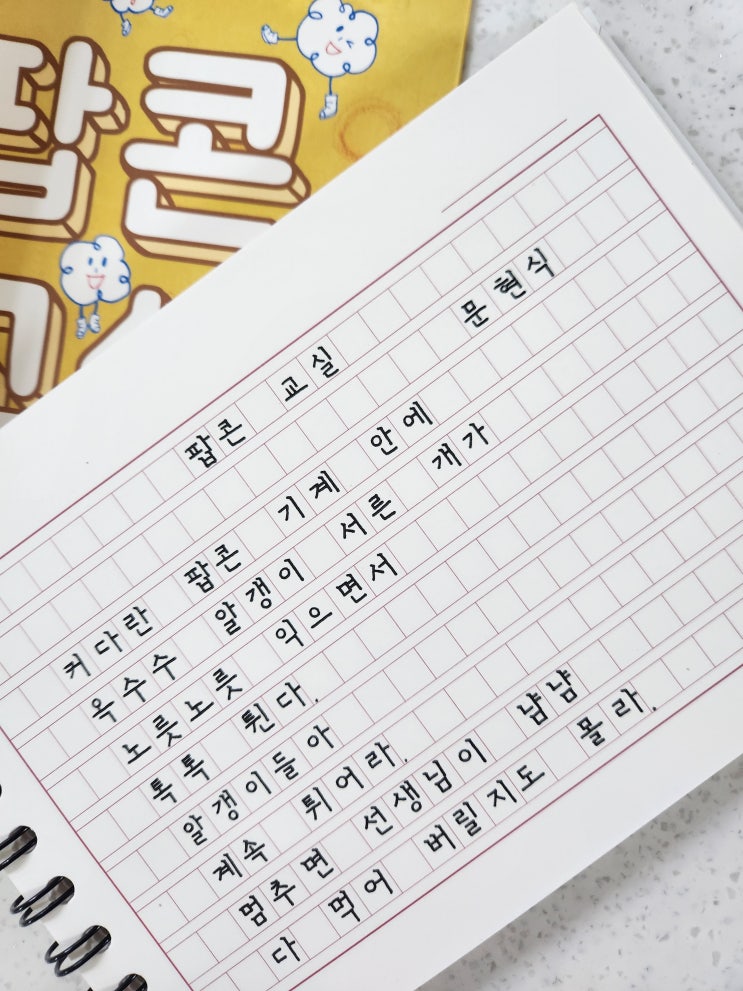 팝콘
팝콘 교실
문현식
커다란 팝콘 기계 안에
옥수수 알갱이 서른 개가
노릇노릇 익으면서
톡톡 튄다.
알갱이들아
계속 튀어라.
멈추면 선생님이 냠냠
다 먹어 버릴지도 몰라.